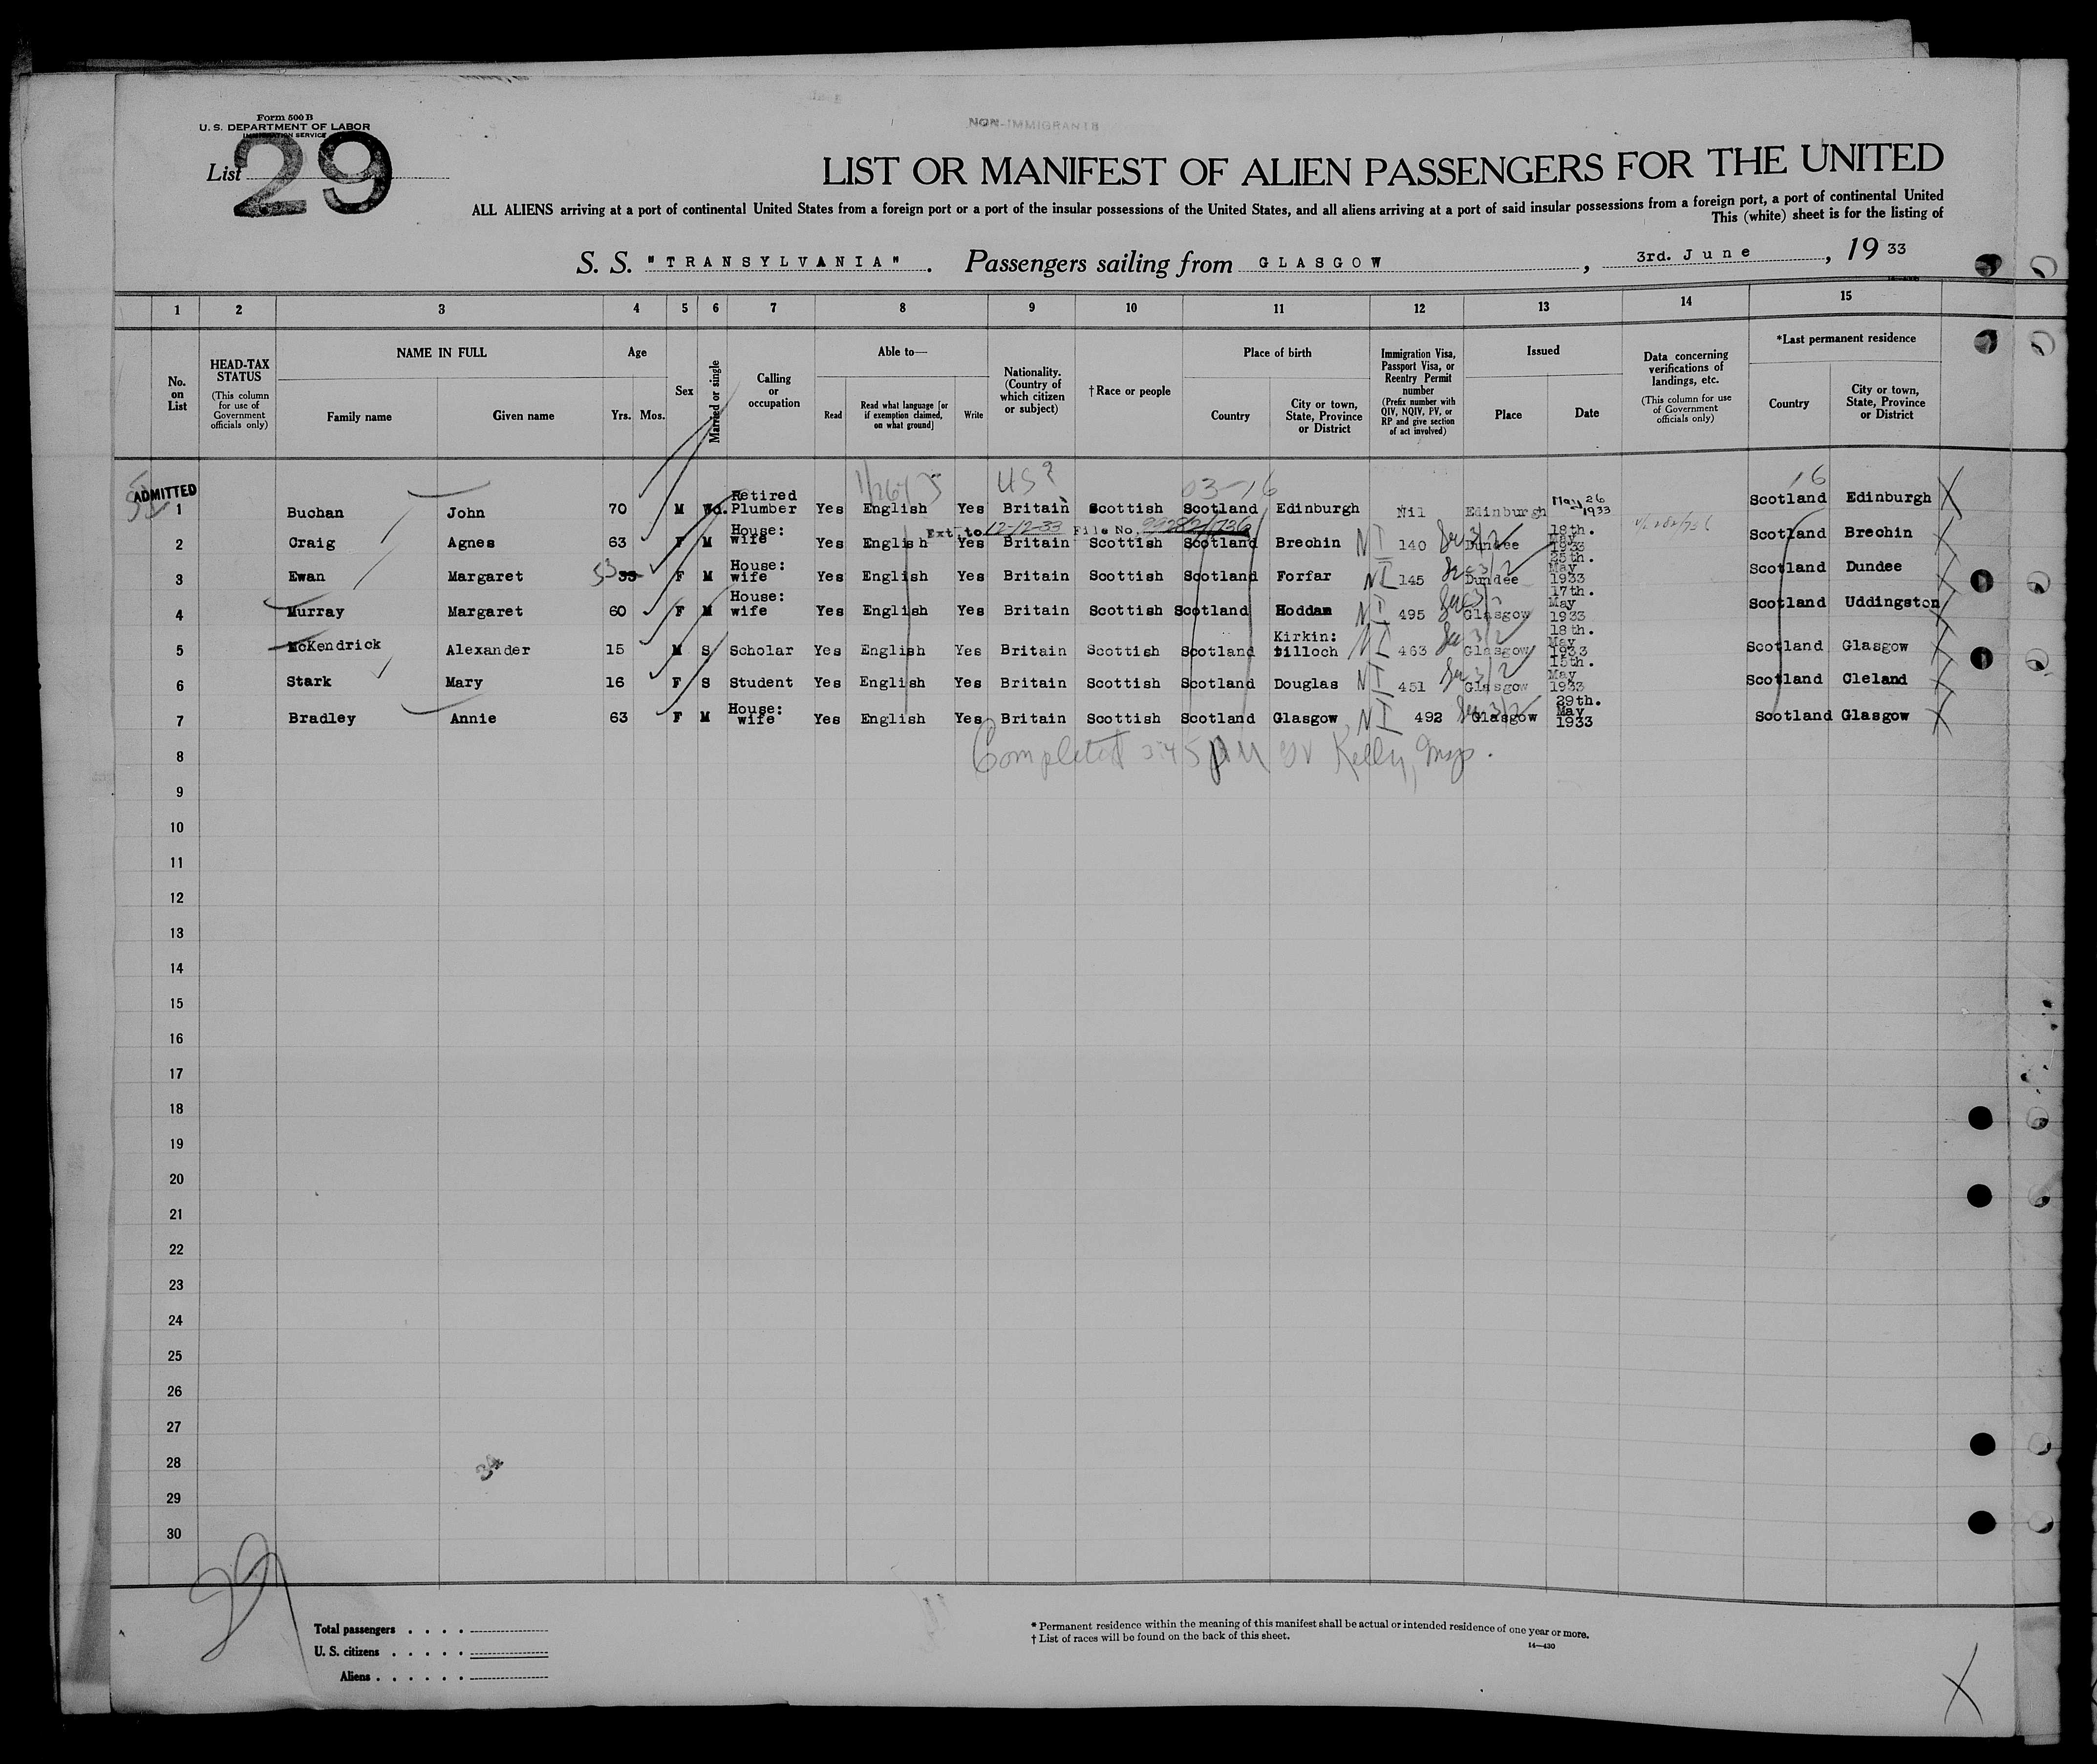 NON-IMMIGRANTS
Form 500 B
U. S. DEPARTMENT OF LABOR
IMMIGRATION SERVICE
List 29
LIST OR MANIFEST OF ALIEN PASSENGERS FOR THE UNITED
ALL ALIENS arriving at a port of continental United States from a foreign port or a port of the insular possessions of the United States, and all aliens arriving at a port of said insular possessions from a foreign port, a port of continental United
This (white) sheet is for the listing of
S. S. "TRANSYLVANIA". Passengers sailing from GLASGOW, 3rd. June, 19 33
1 2 3 4 5 6 7 8 9 10 11 12 13 14 15
No. on List
HEAD-TAX STATUS (This column for use of Government officials only)
NAME IN FULL
Family name Given name
Age
Yrs. Mos.
Sex
Married or single
Calling or occupation
Able to—
Read Read what language [or if exemption claimed, on what ground] Write
Nationality. (Country of which citizen or subject)
†Race or people
Place of birth
Country City or town, State, Province or District
Immigration Visa, Passport Visa, or Reentry Permit number (Prefix number with QIV, NQIV, PV, or RP and give section of act involved)
Issued
Place Date
Data concerning verifications of landings, etc. (This column for use of Government officials only)
*Last permanent residence
Country City or town, State, Province or District
US? 03-16 16
ADMITTED
1 Buchan John 70 M Wd. Retired Plumber Yes English Yes Britain Scottish Scotland Edinburgh Nil Edinburgh May 26 1933 Scotland Edinburgh
Ext. to 12-12-33 File No. 99282/736
2 Craig Agnes 63 F M House: wife Yes English Yes Britain Scottish Scotland Brechin NI 140 Sec 3/2 Dundee 18th. May 1933 Scotland Brechin
3 Ewan Margaret 53 F M House: wife Yes English Yes Britain Scottish Scotland Forfar NI 145 Sec 3/2 Dundee 25th. May 1933 Scotland Dundee
4 Murray Margaret 60 F M House: wife Yes English Yes Britain Scottish Scotland Hoddam NI 495 Glasgow 17th. May 1933 Scotland Uddingston
5 McKendrick Alexander 15 M S Scholar Yes English Yes Britain Scottish Scotland Kirkin: tilloch NI 463 Sec 3/2 Glasgow 18th. May 1933 Scotland Glasgow
6 Stark Mary 16 F S Student Yes English Yes Britain Scottish Scotland Douglas NI 451 Sec 3/2 Glasgow 15th. May 1933 Scotland Cleland
7 Bradley Annie 63 F M House: wife Yes English Yes Britain Scottish Scotland Glasgow NI 492 Sec 3/2 Glasgow 29th. May 1933 Scotland Glasgow
8 Completed 3:45 PM Kelly, Insp.
9
10
11
12
13
14
15
16
17
18
19
20
21
22
23
24
25
26
27
28
34
29
30
29
Total passengers
U. S. citizens
Aliens
* Permanent residence within the meaning of this manifest shall be actual or intended residence of one year or more.
† List of races will be found on the back of this sheet.
14—430